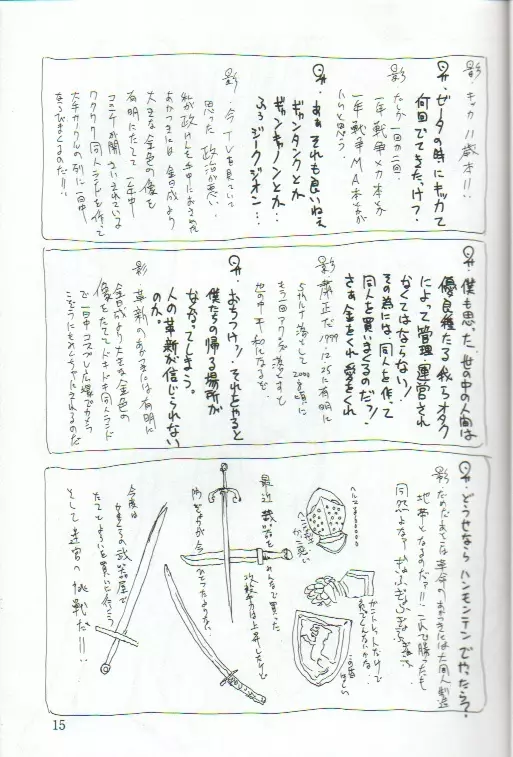 影.キッカ11歳本!!
ゼータの時にキッカて
何回でてきたっけ?
影 たしか一回か二回.
一年戦争メカ本とか
一年戦争MA本とか
いいと思う.
あぁそれも良いねぇ
ギャンタンクとか
ギャンキャノンとか…
ふろ ジークジオン…
影.今TVを見ていて
思った 政治が悪い.
私が政けんを手中におさめた
あかつきには金日成より
大きな金色の像を
有明にたてて 一年中
コミケが開さいされている
ワクワク同人ランドを作って
大手サークルの列に一日中
ならびまくるのだ!!
僕も思った、世の中の人間は
優良種たる我らオタク
によって管理・運営され
なくてはならない!
その為には同人を作って
同人を買いまくるのだッ!
さぁ金をくれ愛をくれ
影 粛正だ 1999.12.25に有明に
5thルナ落として2000年頃に
もう一回アクシズ落すと
世の中平和になるぞ.
おちつけッ!それをやると
僕たちの帰る場所が
なくなってしまう。
人の革新が信じられない
のか。
影 革新のあかつきには有明に
金日成より大きな金色の
像をたててドキドキ同人ランド
で一日中コスプレした嫁でかこう
どうせならハンモンテンでやったら?
影 だめだあそこは革命のあかつきには大同人製造
地帯となるのだァ!!これで勝ったも
同然よなァ
ヘルメ
ガントレットだけで
この盾
ほしい
最近 武器をためこんで買った
攻撃力は上昇したけど
防ぎょ力が今一つたよりない.
今度は
武器屋で
たてとよろいを買いに行こう
そして迷宮への挑戦だ!!
15